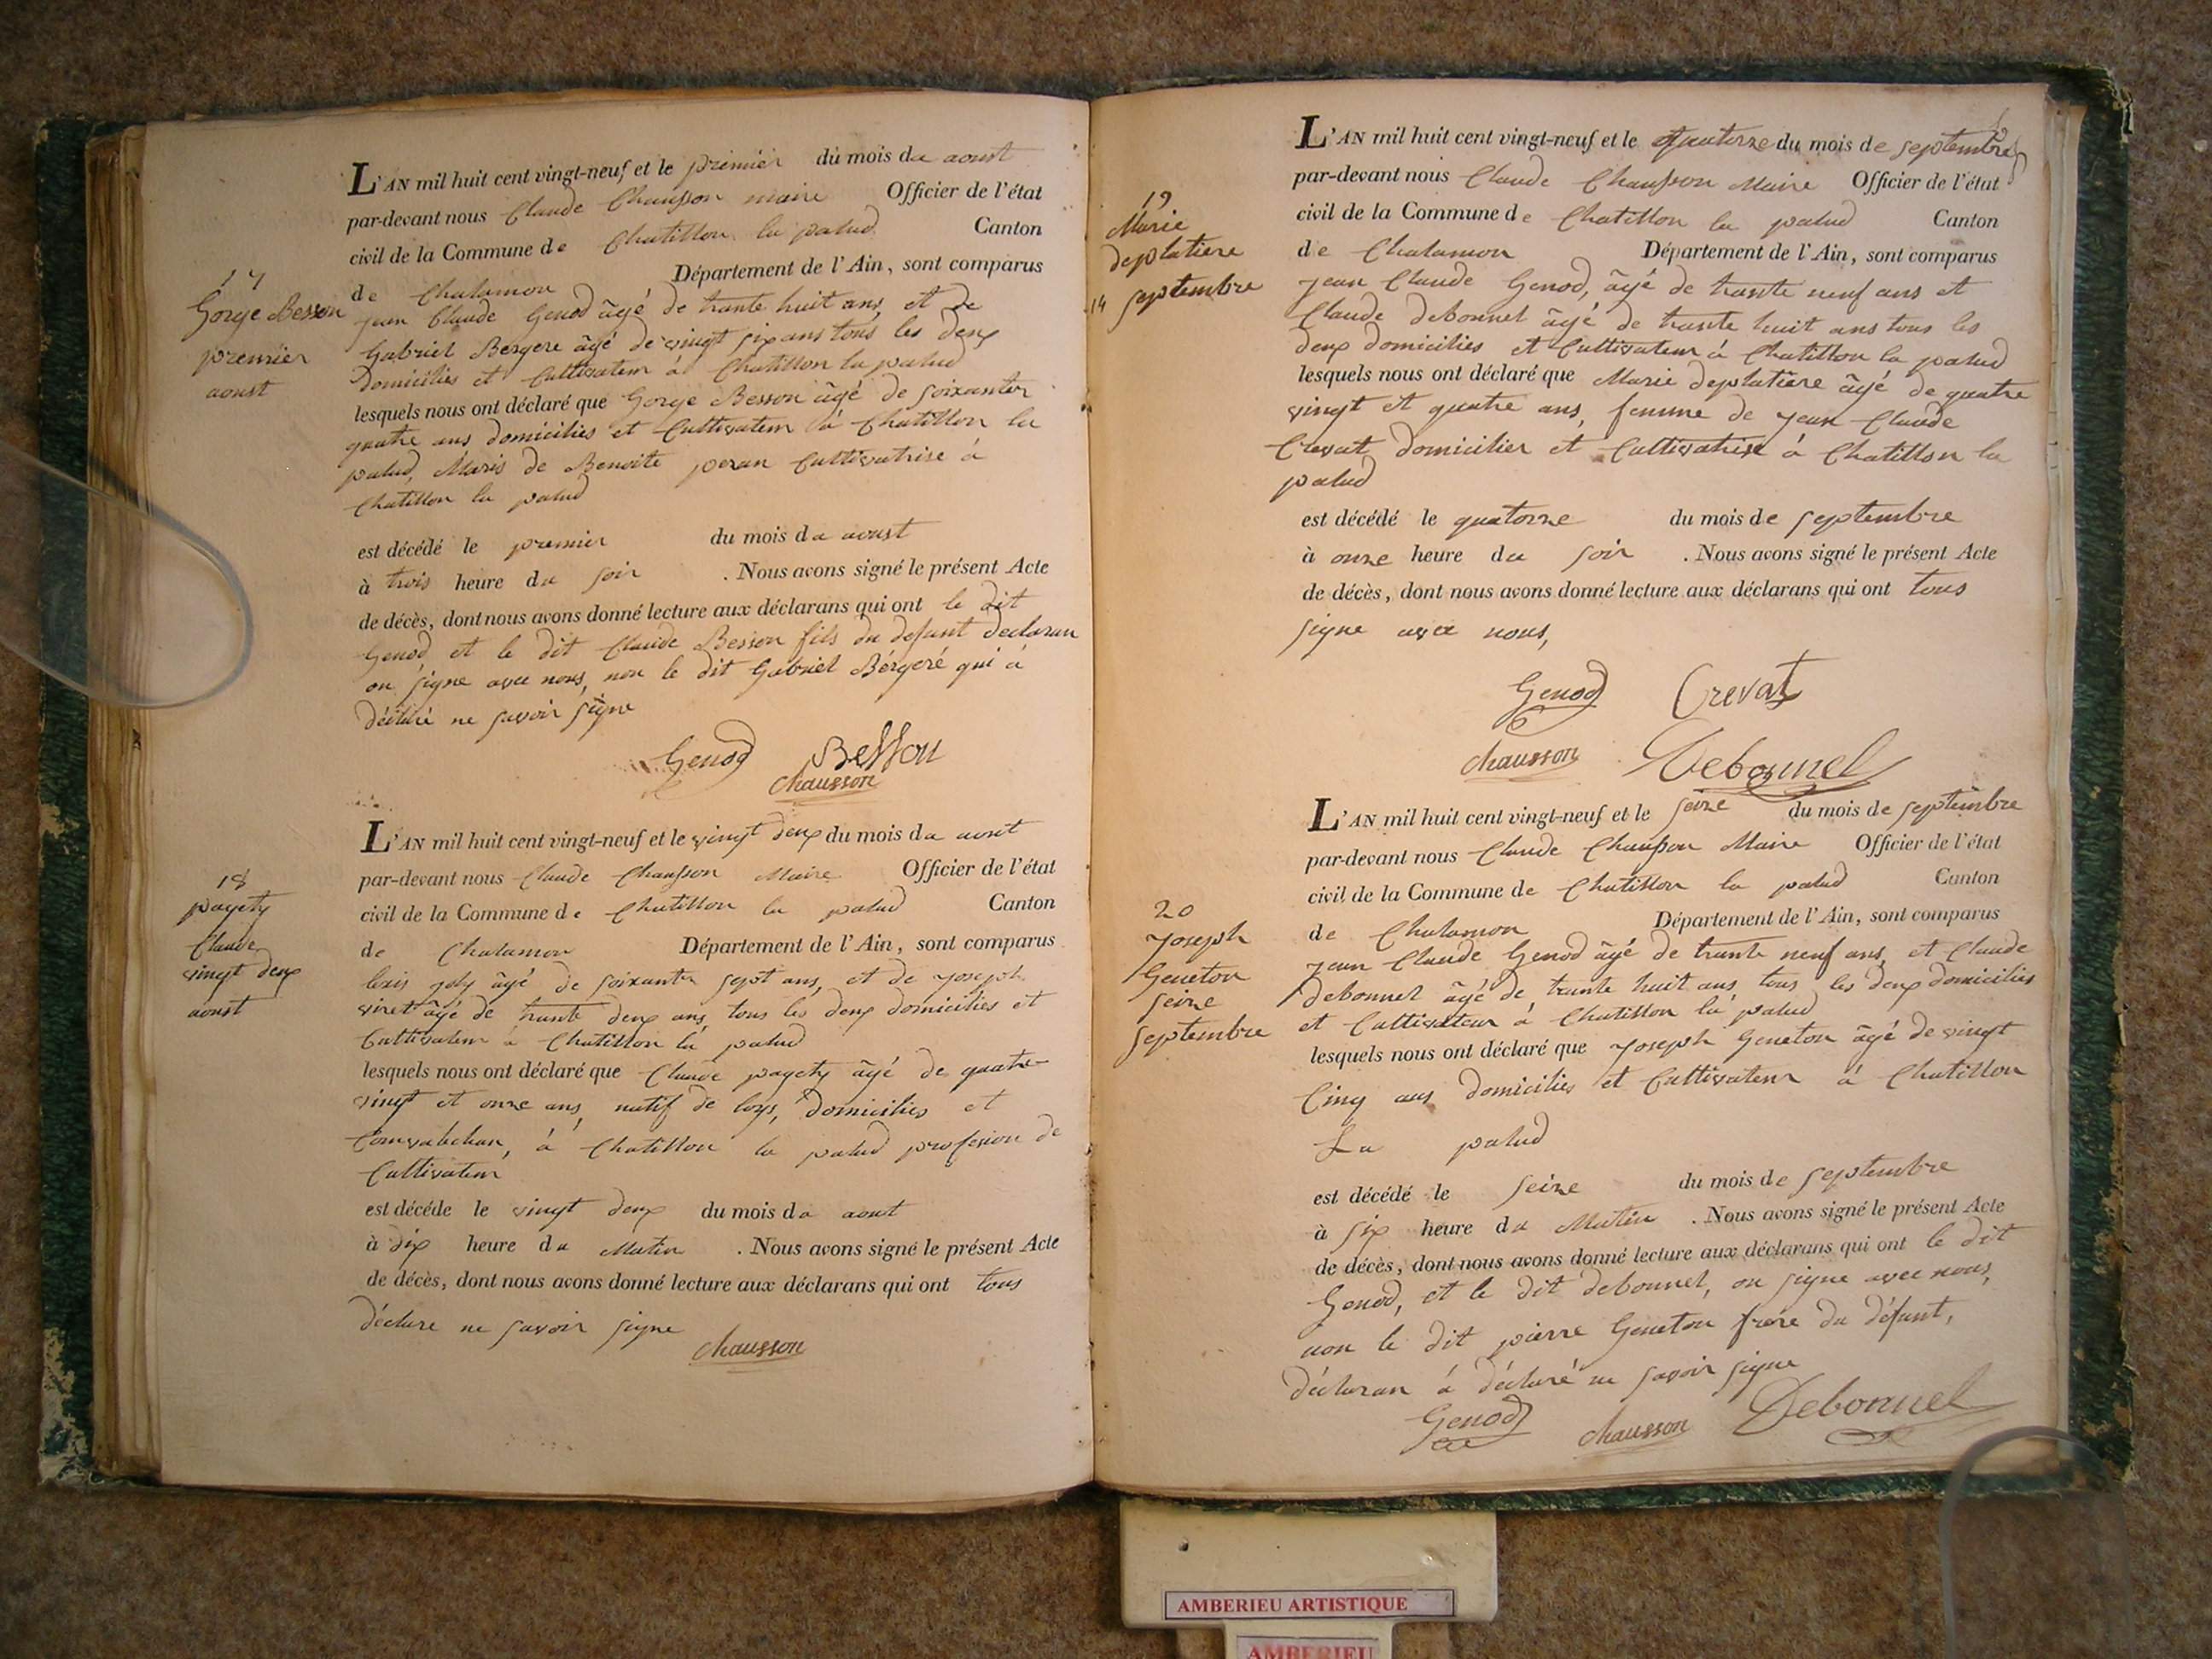 17
Gorge Besson
premier
aoust
L'AN mil huit cent vingt-neuf et le premier du mois da aoust
par-devant nous Claude Chausson maire Officier de l'état
civil de la Commune de Chatillon la palud Canton
de Chalamon Département de l'Ain, sont comparus
jean Claude Genod âgé de trante huit ans, et de
Gabriel Bergere âgé de vingt six ans tous les deux
domiciliés et Cultivateur à Chatillon la palud
lesquels nous ont déclaré que Gorge Besson âgé de soixanter
quatre ans domiciliés et Cultivateur à Chatillon la
palud, Maris de Benoite peran Cultivatrise à
Chatillon la palud
est décédé le premier du mois da aoust
à trois heure du soir . Nous avons signé le présent Acte
de décès, dont nous avons donné lecture aux déclarans qui ont le dit
Genod et le dit Claude Besson fils du defunt declaran
on signe avec nous, non le dit Gabriel Bérgeré qui à
déclaré ne savoir signe
Genod Besson
Chausson
18
pagety
Claude
vingt deux
aoust
L'AN mil huit cent vingt-neuf et le vingt deux du mois da aout
par-devant nous Claude Chausson Maire Officier de l'état
civil de la Commune de Chatillon la palud Canton
de Chalamon Département de l'Ain, sont comparus
louis joly âgé de soixante sept ans, et de joseph
viret âgé de trante deux ans, tous les deux domiciliés et
Cultivateur à Chatillon la palud
lesquels nous ont déclaré que Claude pagety âgé de quatre
vingt et onze ans, natif de loys, domiciliés et
à Chatillon la palud profesion de
Cultivateur
est décédé le vingt deux du mois da aout
à dix heure du Matin . Nous avons signé le présent Acte
de décès, dont nous avons donné lecture aux déclarans qui ont tous
déclare ne savoir signe
Chausson
19
Marie
deplatiere
14 septembre
L'AN mil huit cent vingt-neuf et le quatorze du mois de septembre
par-devant nous Claude Chausson Maire Officier de l'état
civil de la Commune de Chatillon la palud Canton
de Chalamon Département de l'Ain, sont comparus
jean Claude Genod, âgé de trante neuf ans et
Claude debonnel âgé de trante huit ans tous les
deux domiciliés et Cultivateur à Chatillon la palud
lesquels nous ont déclaré que Marie deplatière âgé de quatre
vingt et quatre ans, femme de jean Claude
Crevat domicilier et Cultivatrise à Chatillon la
palud
est décédé le quatorze du mois de septembre
à onze heure du soir . Nous avons signé le présent Acte
de décès, dont nous avons donné lecture aux déclarans qui ont tous
signe avec nous,
Genod Crevat
Chausson Debonnel
20
joseph
Geneton
seize
septembre
L'AN mil huit cent vingt-neuf et le seize du mois de septembre
par-devant nous Claude Chausson Maire Officier de l'état
civil de la Commune de Chatillon la palud Canton
de Chalamon Département de l'Ain, sont comparus
jean Claude Genod âgé de trante neuf ans, et Claude
debonnel âgé de trante huit ans tous les deux domiciliés
et Cultivateur à Chatillon la palud
lesquels nous ont déclaré que joseph Geneton âgé de vingt
Cinq ans domiciliés et Cultivateur à Chatillon
La palud
est décédé le seize du mois de septembre
à six heure du Matin . Nous avons signé le présent Acte
de décès, dont nous avons donné lecture aux déclarans qui ont le dit
Genod, et le dit debonnel, on signe avec nous,
non le dit pierre Geneton frere du défunt,
déclaran à déclaré ne savoir signe
Genod Chausson Debonnel
AMBERIEU ARTISTIQUE
AMBERIEU